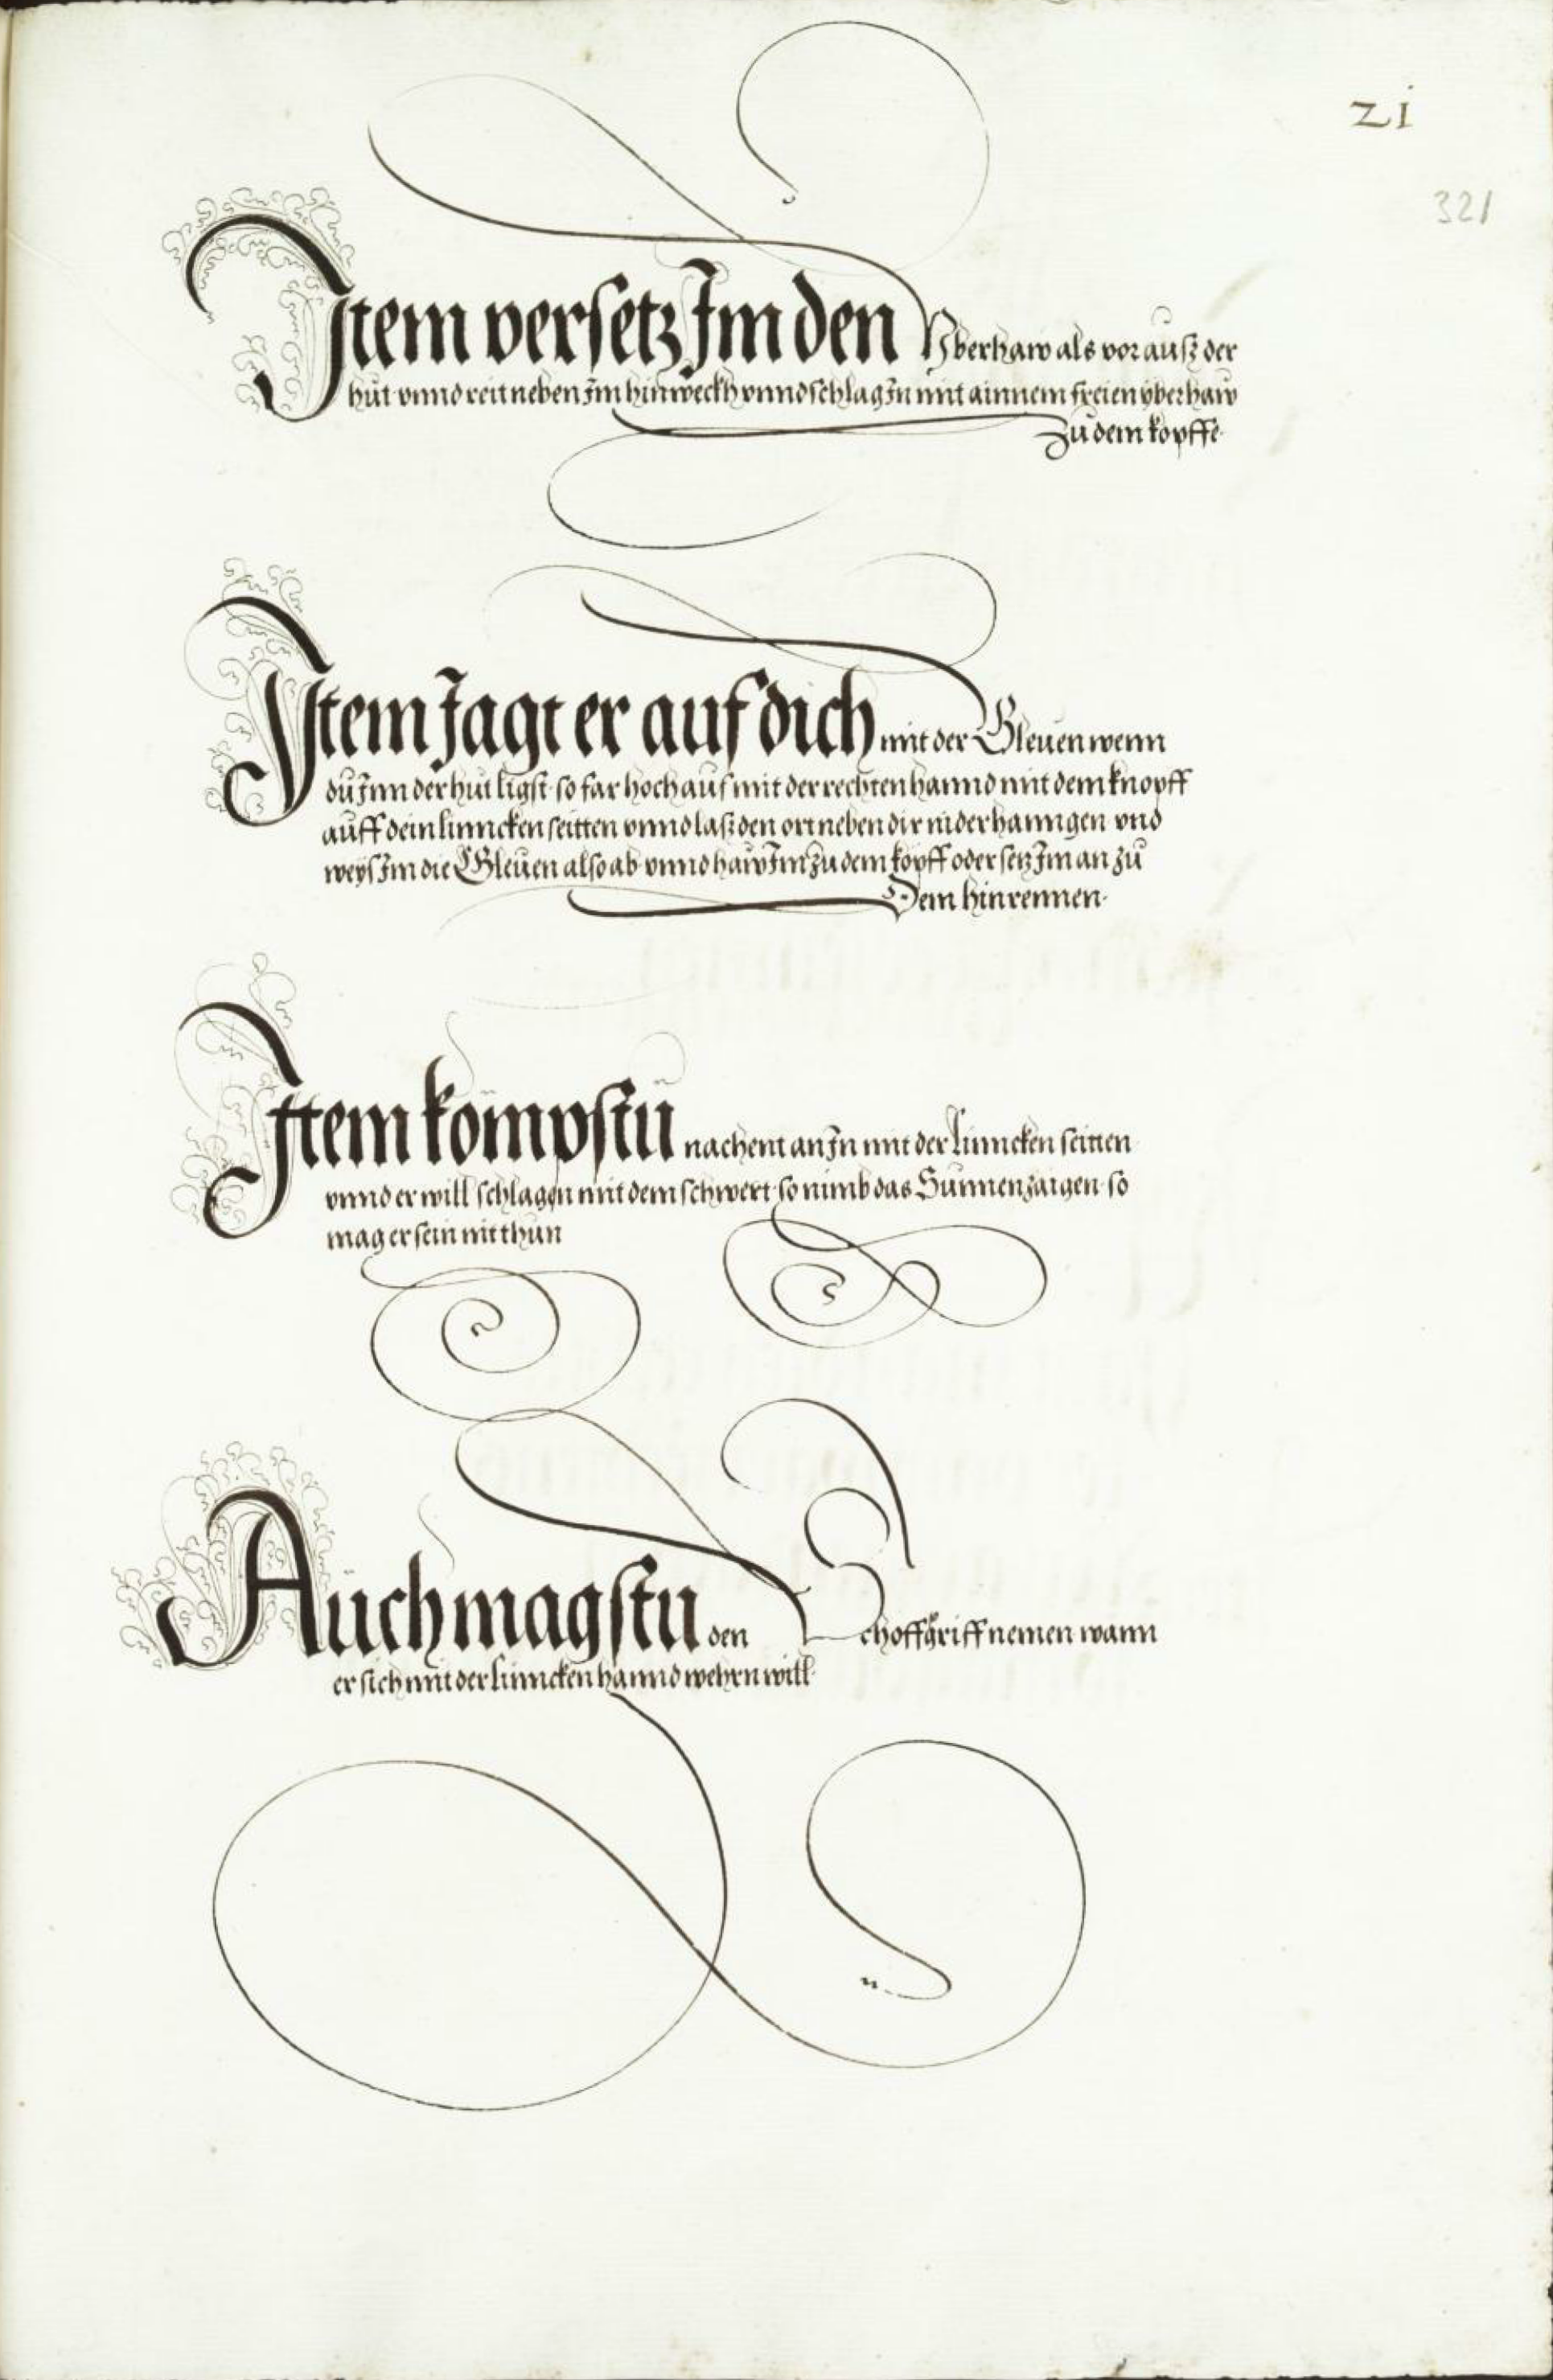 zi
321
Item versetz Im den Yberhaw als vor auß der
hůt vnnd reit neben Im hinweckh vnnd schlag In mit ainnem freien yberhaw
Zu dem kopffe
Item Jagt er auf dich mit der Gleuen wenn
du Inn der hut ligst so far hoch auf mit der rechten hannd mit dem knopff
auff dein linncken seitten vnnd laß den ort neben dir niderhanngen vnd
weys Im die Gleuen also ab vnnd haw Im zu dem kopff oder setz Im an zu
Dem hinrennen
Item kompstu nachent an In mit der linncken seitten
vnnd er will schlagen mit dem schwert so nimb das Sunnenzaigen so
mag er sein nit thun
Auch magstu den griff nemen wann
er sich mit der linncken hannd wehrn will